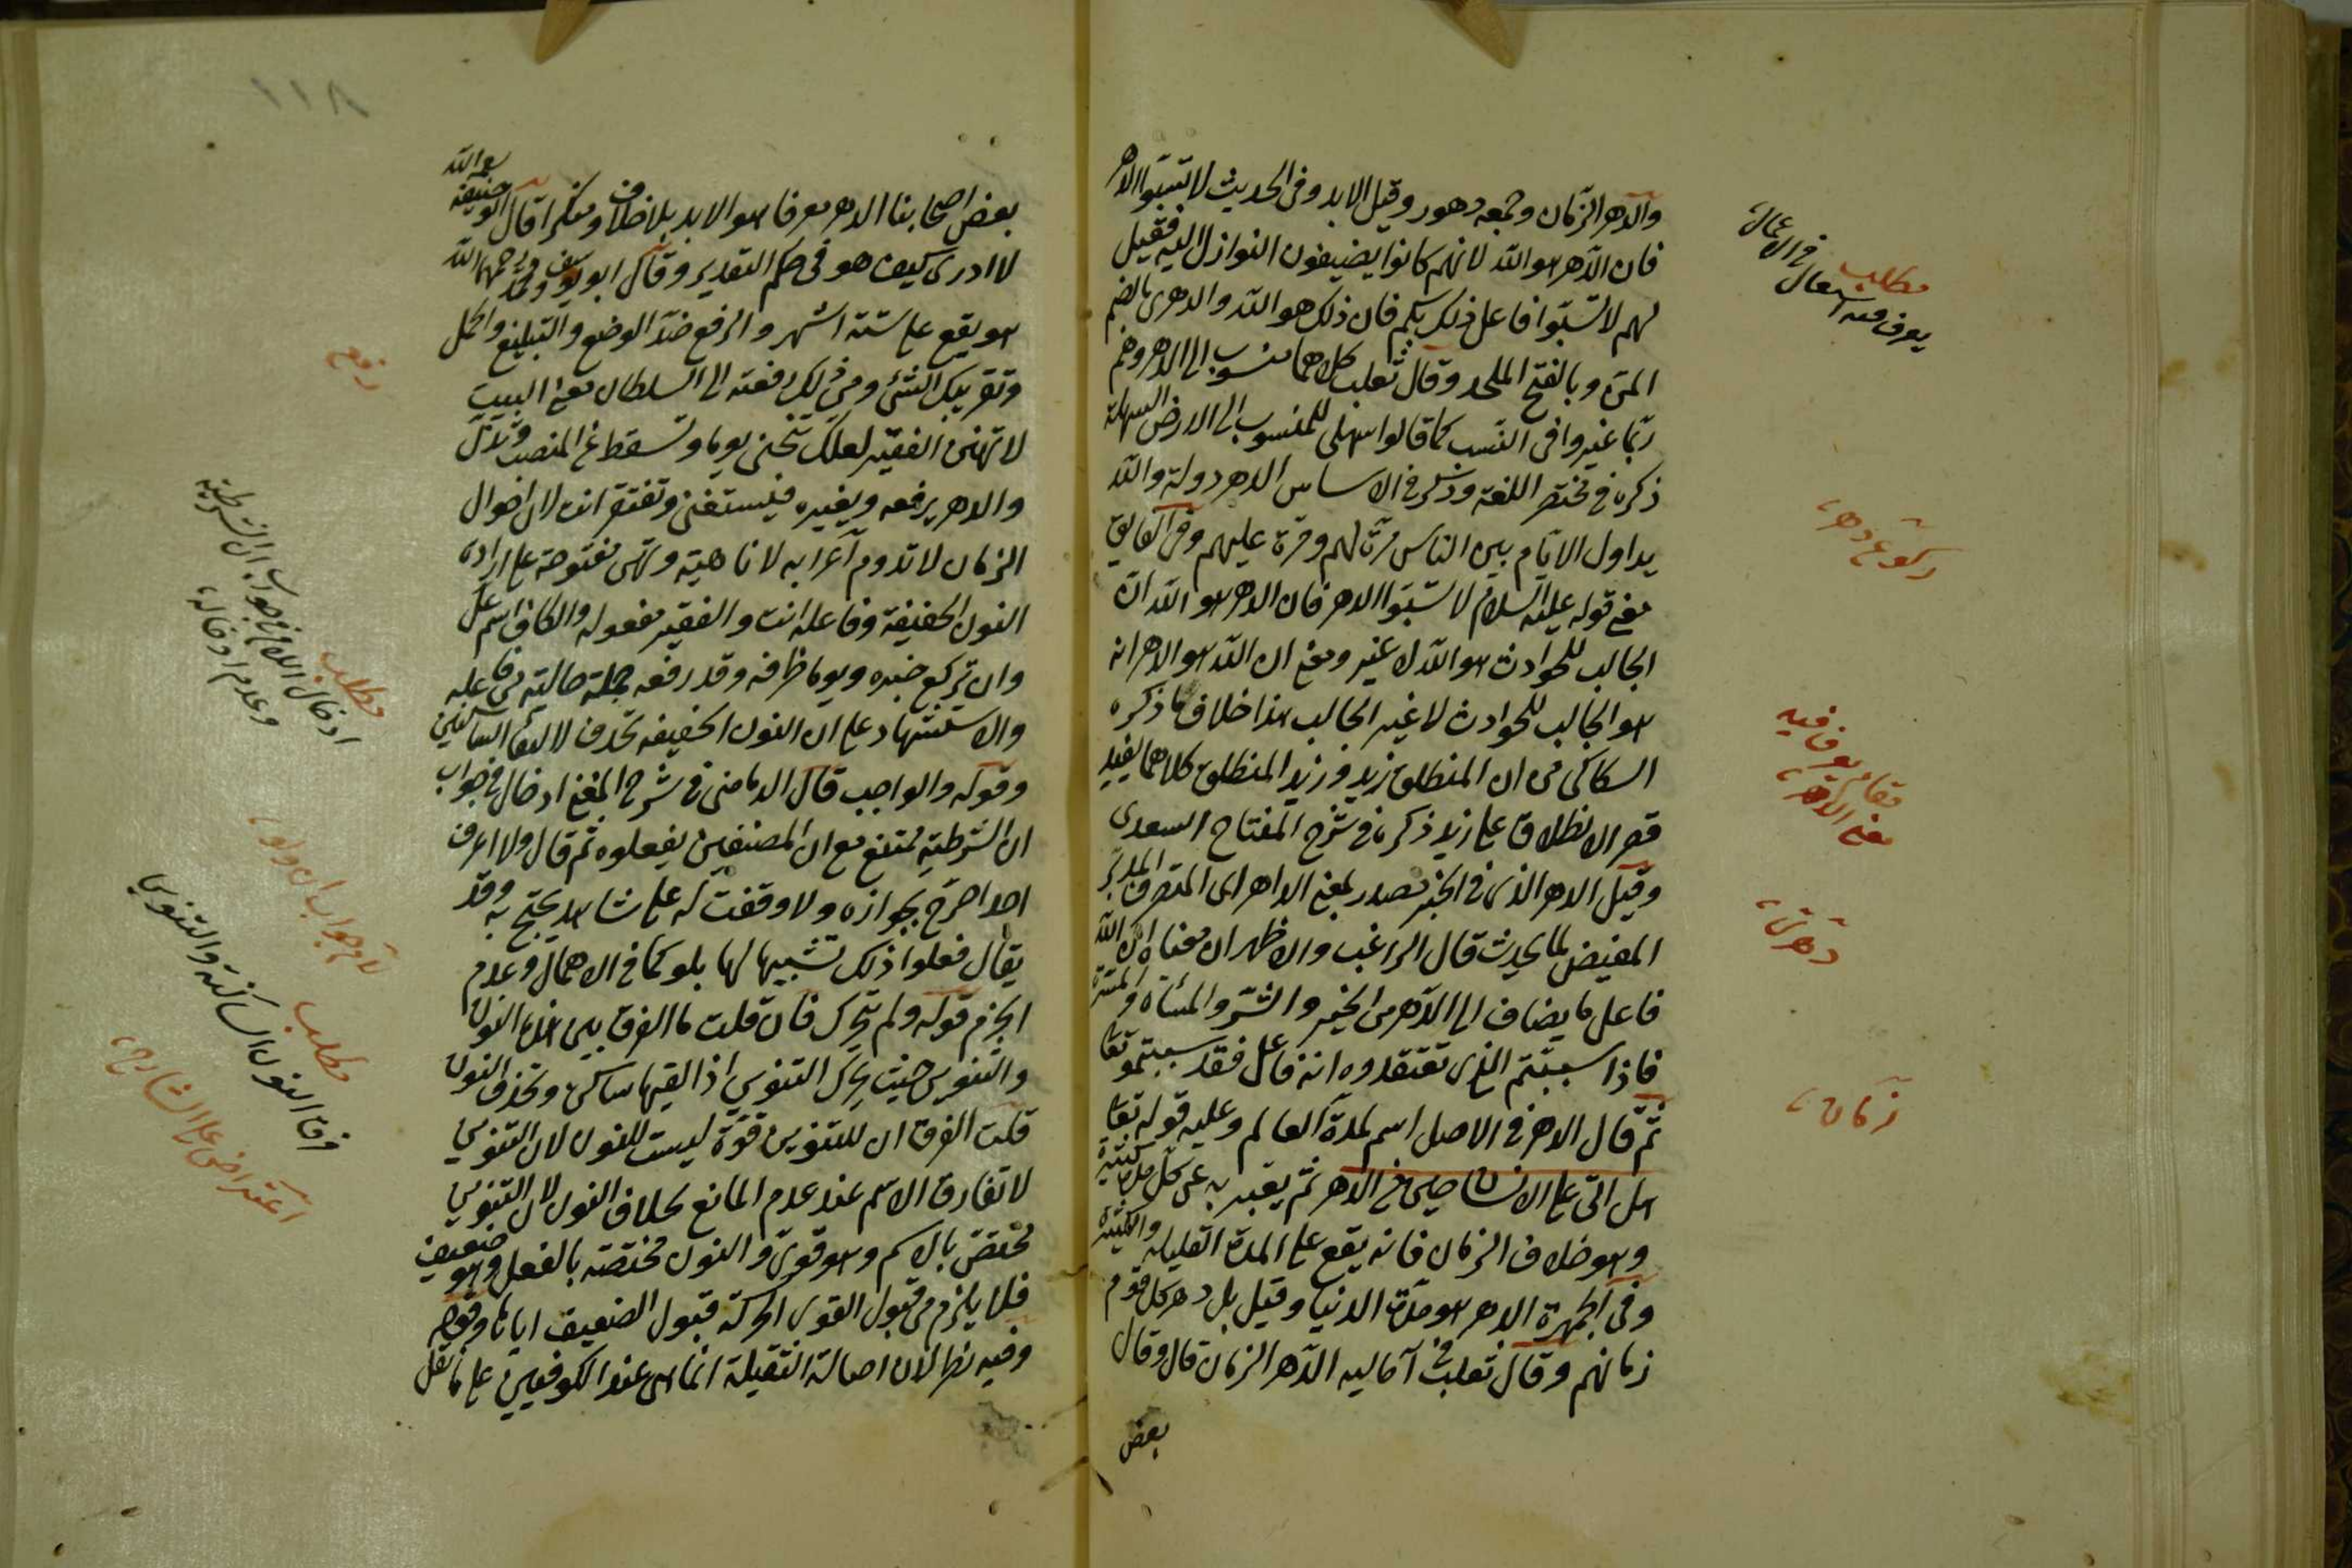 والدهر الزمان وجمعه دهور وقيل الابد وفى الحديث لا تسبوا الدهر
فان الدهر هو الله لانهم كانوا يضيفون النوازل اليه فقيل
لهم لا تسبوا فاعل ذلك بكم فان ذلك هو الله والدهرى بالضم
المسن وبالفتح الملحد وقال ثعلب كلاهما منسوب الى الدهر وهم
ربما غيروا فى النسب كما قالوا سهلى للمنسوب الى الارض السهلة
ذكره فى مختصر اللغة وذكر فى الاساس الدهر دولة والله
يداول الايام بين الناس مرة لهم ومرة عليهم وفى الفايق
معنى قوله عليه السلام لا تسبوا الدهر فان الدهر هو الله ان
الجالب للحوادث هو الله لا غير ومعنى ان الله هو الدهر انه
هو الجالب للحوادث لا غير الجالب هذا خلاف ما ذكره
السكاكى من ان المنطلق زيد وزيد المنطلق كلاهما يفيد
قصر الانطلاق على زيد ذكره فى شرح المفتاح السعدى
وقيل الدهر الذى فى الخبر مصدر بمعنى الداهر اى المتصرف المدبر
المفيض لما يحدث قال الراغب والاظهر ان معناه ان الله
فاعل ما يضاف الى الدهر من الخير والشر والمسأة والمسرة
فاذا سببتم الذى تعتقدوه انه فاعل فقد سببتموه تعا
ثم قال الدهر فى الاصل اسم لمدة العالم وعليه قوله تعا
هل اتى على الانسان حين من الدهر ثم يعبر به عن كل مدة كثيرة
وهو خلاف الزمان فانه يقع على المدة القليلة والكثيرة
وفى الجمهرة الدهر هو مدة الدنيا وقيل بل دهر كل قوم
زمانهم وقال ثعلب فى آماليه الدهر الزمان قال وقال
بعض
مطلب
يعرف منه استعمال
فى الاعمال
مقام يعرف فيه
معنى الدهر
زمان
١١٨
بعض اصحابنا الدهر معرفا هو الابد بلا خلاف ومنكرا قال ابو حنيفة رحمه الله
لا ادرى كيف هو فى حكم التقدير وقال ابو يوسف ومحمد رحمهما الله
هو يقع على ستة اشهر والرفع ضد الوضع والتبليغ والحمل
وتقريبك الشئ ومن ذلك رفعته الى السلطان معنى البيت
لا تهين الفقير لعلك تنحنى يوما وتسقط عن المنصب وتذل
والدهر يرفعه ويغيره فيستغنى وتفتقر انت لان احوال
الزمان لا تدوم اعرابه لا ناهية وتهين مفتوحة على ارادة
النون الخفيفة وفاعله انت والفقير مفعوله والكاف اسم عل
وان تركع خبره ويوما ظرفه وقد رفعه جملة حالية من فاعله
والاستشهاد على ان النون الخفيفة تحذف لالتقاء الساكنين
وقوله والواجب قال الدمامينى فى شرح المغنى ادخال فى جواب
ان الشرطية ممتنع مع ان المصنفين يفعلوه ثم قال ولا اعرف
احدا صرح بجوازه ولا وقفت له على شاهد يحتج به وقد
يقال فعلوا ذلك تشبيها لها بلو كما فى الاهمال وعدم
الجزم قوله ولم تحرك فان قلت ما الفرق بين هذه النون
والتنوين حيث يحرك التنوين اذا لقيها ساكن وتحذف النون
قلت الفرق ان للتنوين قوة ليست للنون لان التنوين
لا تفارق الاسم عند عدم المانع بخلاف النون لان التنوين
تختص بالاسم وهو قوى والنون مختصة بالفعل وهو ضعيف
فلا يلزم من قبول القوى الحركة قبول الضعيف اياها وقوله
وفيه نظر لان اصالة الثقيلة انما هى عند الكوفيين على ما نقل
رفع
مطلب
ادخال اللام فى جواب ان الشرطية
وعدم ادخاله
لام جواب ان ولو
مطلب
فرق النون الساكنة والتنوين
اعتراض على الشارح